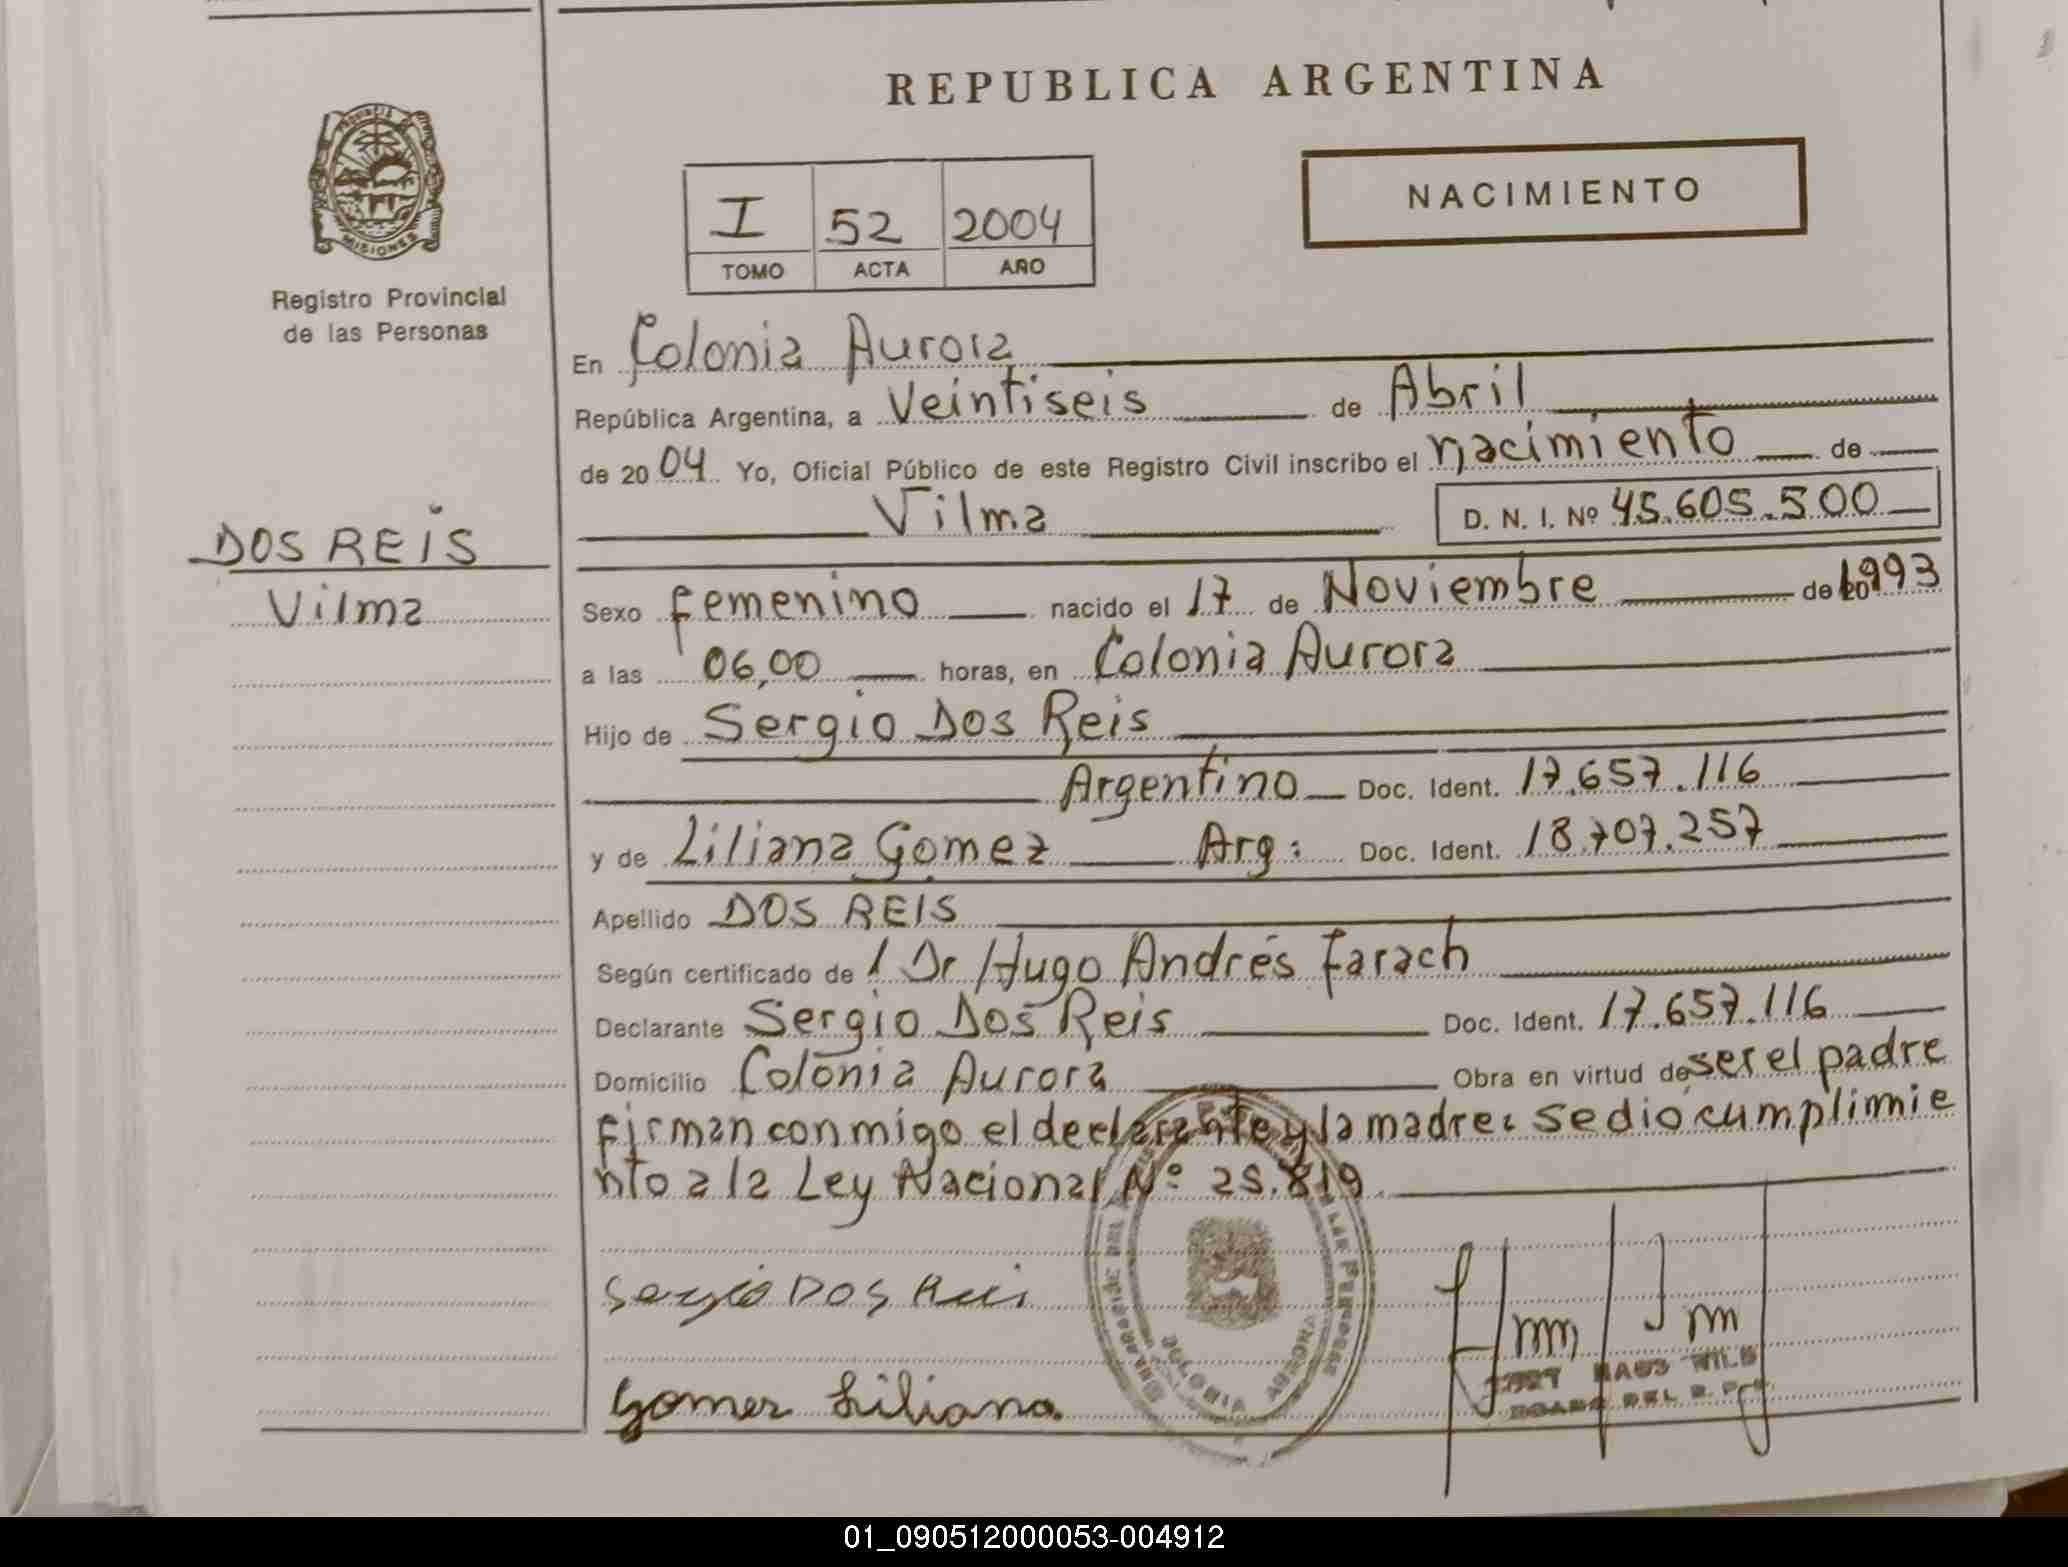 REPUBLICA ARGENTINA
PROVINCIA DE
MISIONES
Registro Provincial
de las Personas
NACIMIENTO
I 52 2004
TOMO ACTA AÑO
En Colonia Aurora
República Argentina, a Veintiseis de Abril
de 2004 Yo, Oficial Público de este Registro Civil inscribo el nacimiento de
Vilma D. N. I. Nº 45.605.500
DOS REIS
Vilma
Sexo femenino nacido el 17 de Noviembre de 1993
a las 06,00 horas, en Colonia Aurora
Hijo de Sergio Dos Reis
Argentino Doc. Ident. 17.657.116
y de Liliana Gomez Arg: Doc. Ident. 18.707.257
Apellido DOS REIS
Según certificado de / Dr Hugo Andrés Farach
Declarante Sergio Dos Reis Doc. Ident. 17.657.116
Domicilio Colonia Aurora Obra en virtud de ser el padre
Firman conmigo el declarante y la madre: se dio cumplimie
nto a la Ley Nacional Nº 25.819.
Sergio DOS Reis
Gomez Liliana
COLONIA AURORA
01_090512000053-004912